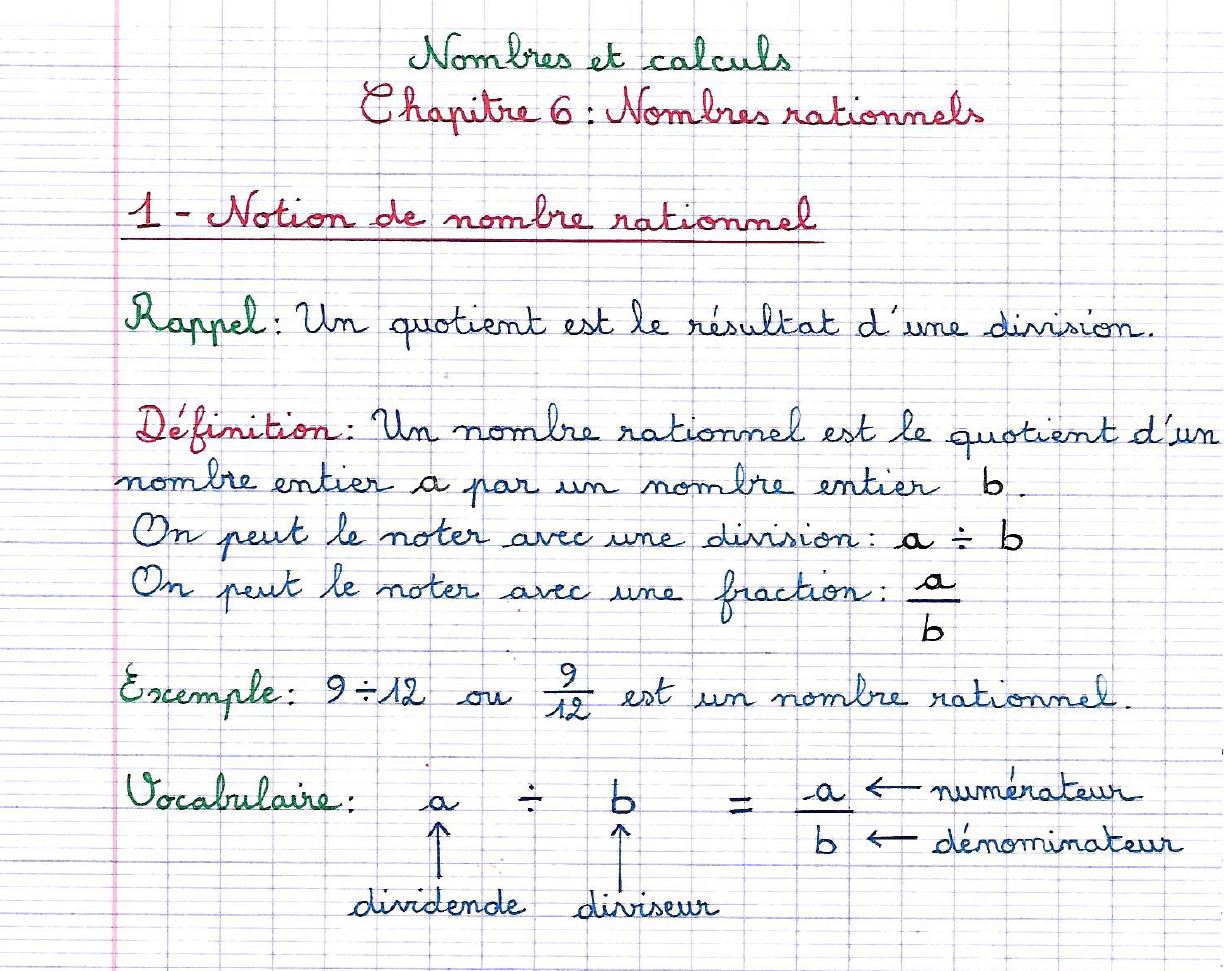 Nombres et calculs
Chapitre 6 : Nombres rationnels
1 - Notion de nombre rationnel
Rappel : Un quotient est le résultat d'une division.
Définition : Un nombre rationnel est le quotient d'un
nombre entier a par un nombre entier b.
On peut le noter avec une division : a ÷ b
On peut le noter avec une fraction : a/b
Exemple : 9÷12 ou 9/12 est un nombre rationnel.
Vocabulaire : a ÷ b = a/b
← numérateur
← dénominateur
↑ ↑
dividende diviseur